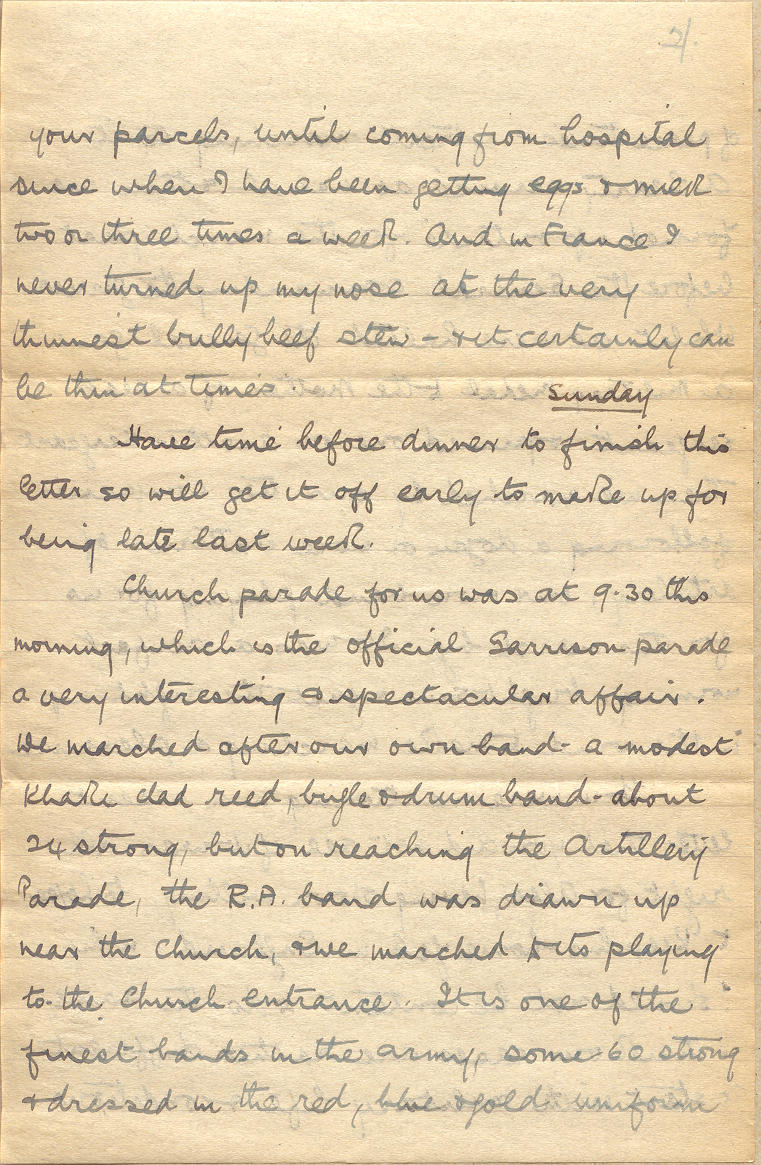 2/.
your parcels, until coming from hospital
since when I have been getting eggs & milk
two or three times a week. And in France I
never turned up my nose at the very
thinnest bully beef stew – & it certainly can
be thin at times
Sunday
Have time before dinner to finish this
letter so will get it off early to make up for
being late last week.
Church parade for us was at 9.30 this
morning, which is the official Garrison parade
a very interesting & spectacular affair.
We marched after our own band - a modest
Khaki clad reed, bugle & drum band - about
24 strong, but on reaching the Artillery
Parade, the R.A. band was drawn up
near the Church, & we marched to its playing
to the Church entrance. It is one of the
finest bands in the army, some 60 strong
& dressed in the red, blue & gold uniform